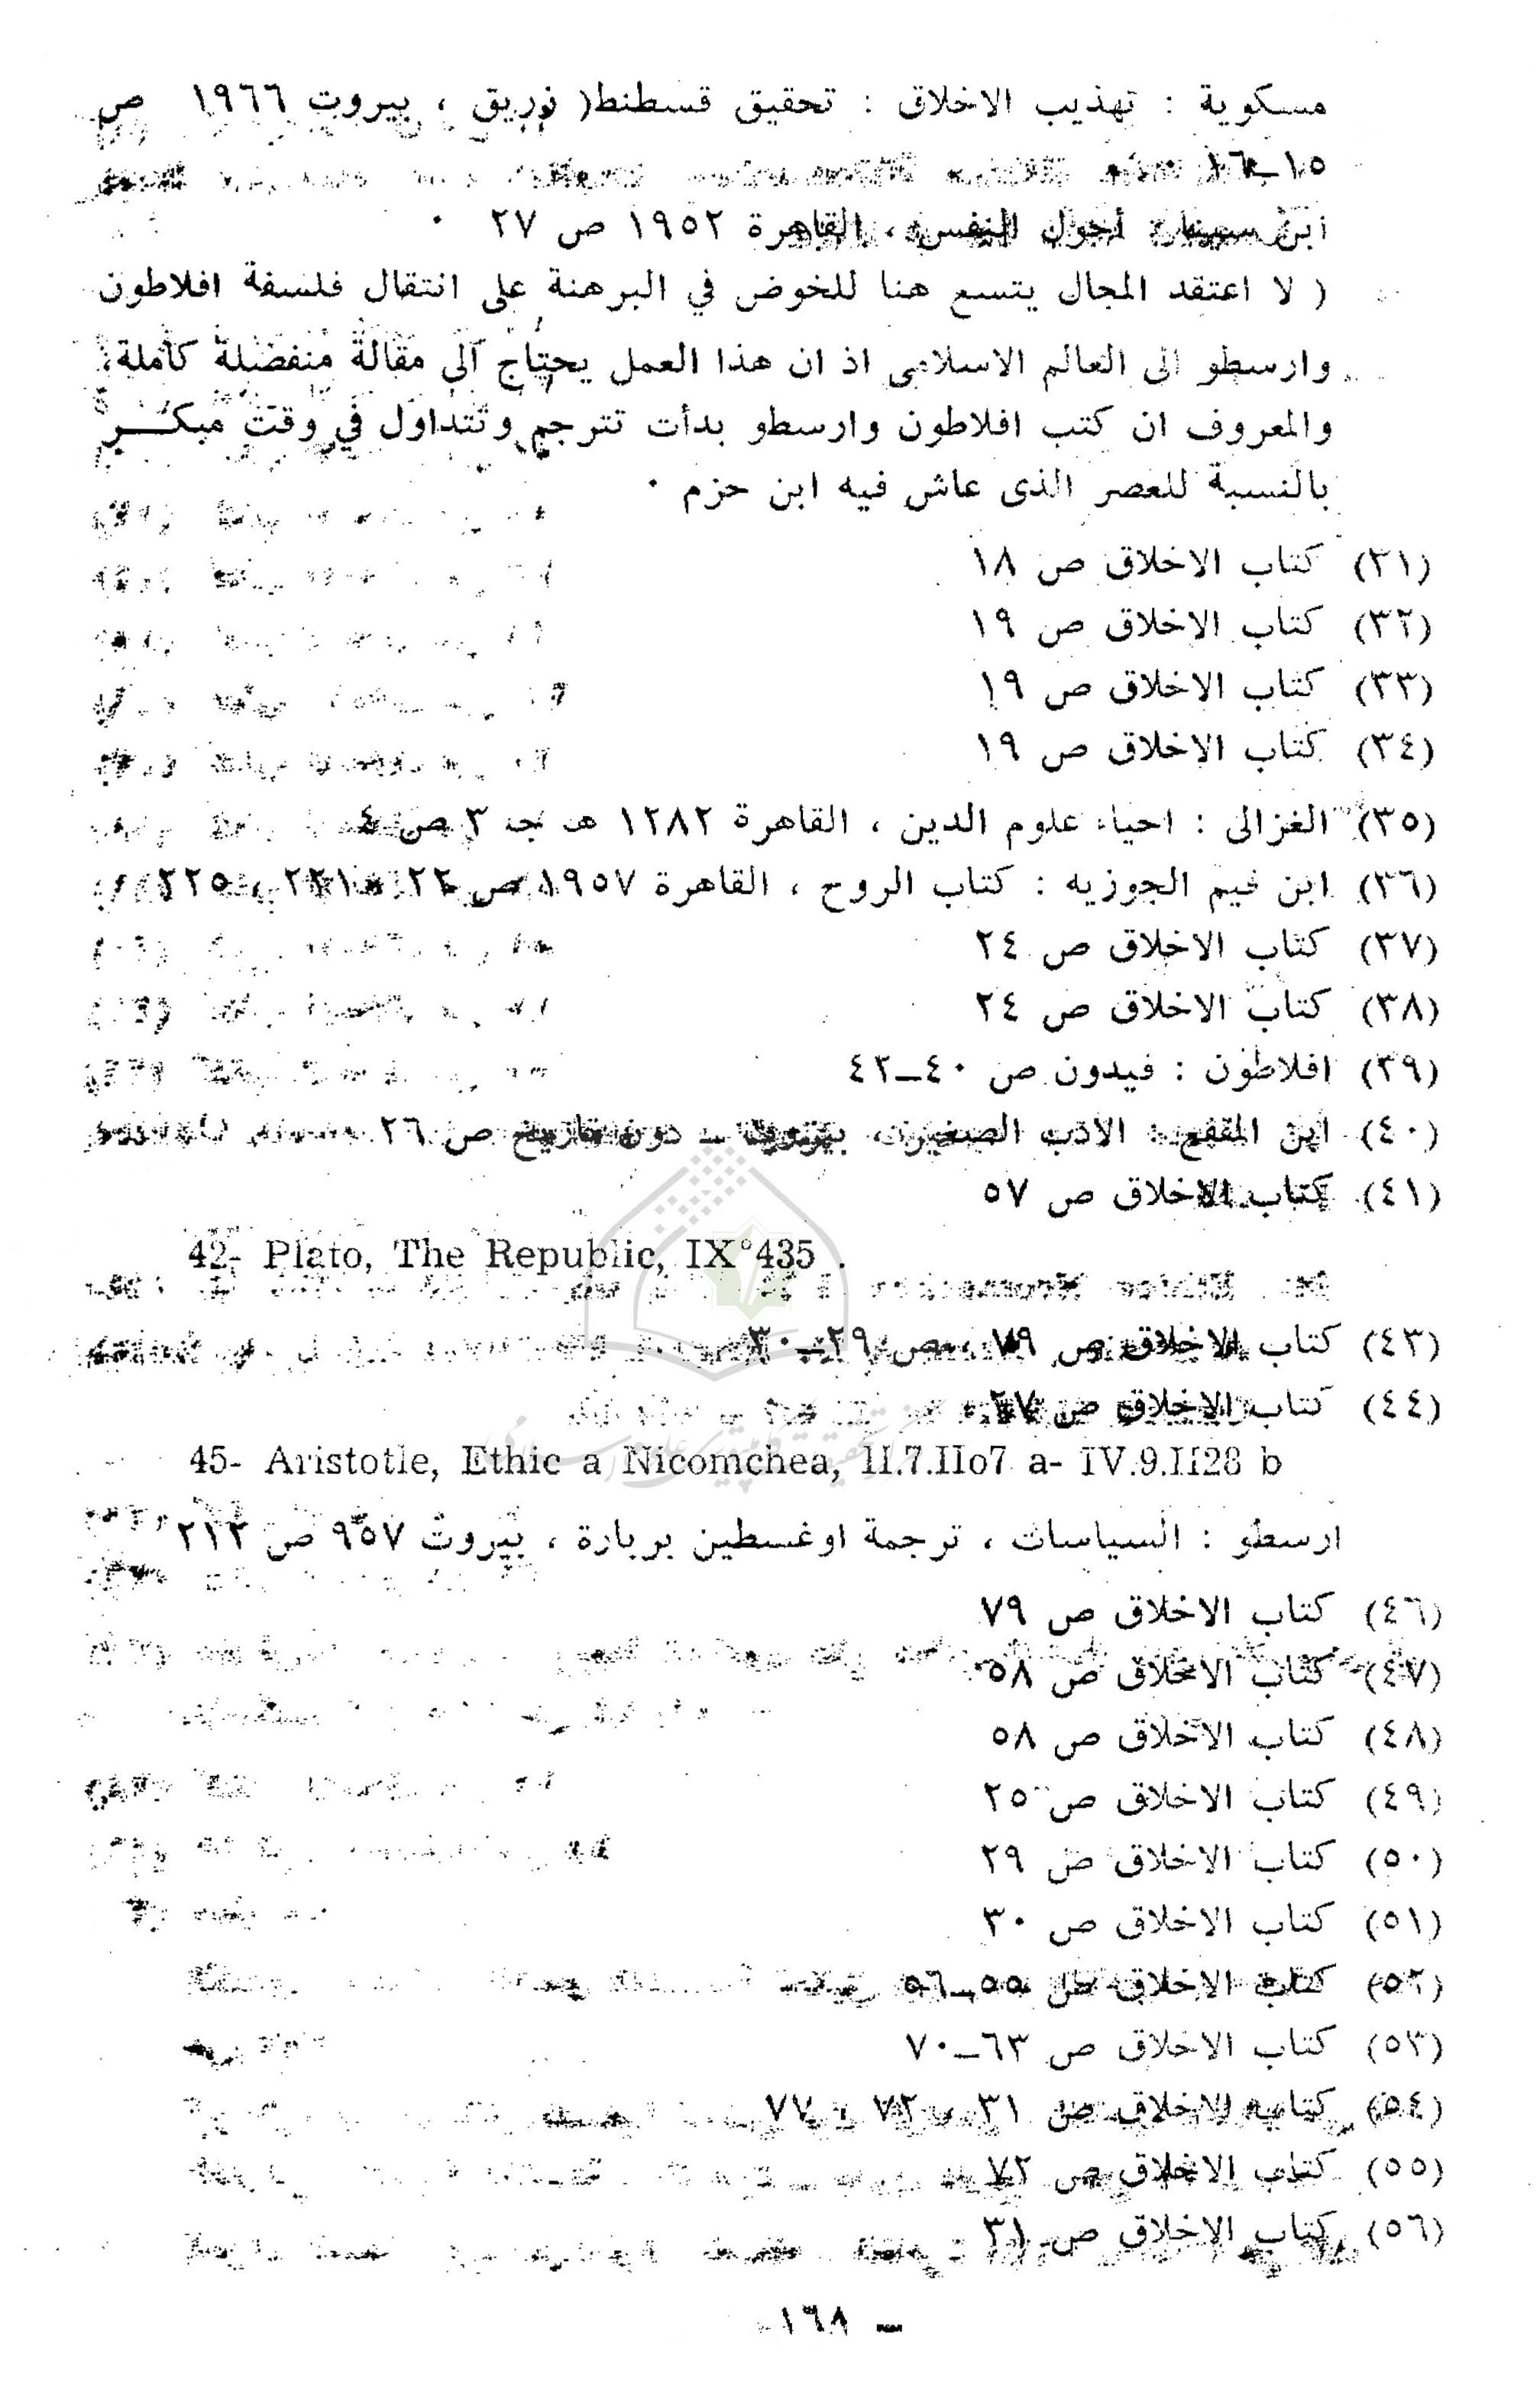 مسكوية : تهذيب الاخلاق : تحقيق قسطنط( زريق ، بيروت ١٩٦٦ ص
١٥ـ١٦
ابن سينا : أحول النفس ، القاهرة ١٩٥٢ ص ٢٧ ٠
( لا اعتقد المجال يتسع هنا للخوض في البرهنة على انتقال فلسفة افلاطون
وارسطو الى العالم الاسلامى اذ ان هذا العمل يحتاج الى مقالة منفصلة كاملة،
والمعروف ان كتب افلاطون وارسطو بدأت تترجم وتتداول في وقت مبكـــر
بالنسبة للعصر الذى عاش فيه ابن حزم ٠
(٣١) كتاب الاخلاق ص ١٨
(٣٢) كتاب الاخلاق ص ١٩
(٣٣) كتاب الاخلاق ص ١٩
(٣٤) كتاب الاخلاق ص ١٩
(٣٥) الغزالى : احياء علوم الدين ، القاهرة ١٢٨٢ هـ جـ ٣ ص ٤
(٣٦) ابن قيم الجوزيه : كتاب الروح ، القاهرة ١٩٥٧ ص ، ٢٢٥
(٣٧) كتاب الاخلاق ص ٢٤
(٣٨) كتاب الاخلاق ص ٢٤
(٣٩) افلاطون : فيدون ص ٤٠ـ٤٢
(٤٠) ابن المقفع : الادب الصغير، بيروت ـ دون تاريخ ص ٢٦
(٤١) كتاب الاخلاق ص ٥٧
42- Plato, The Republic, IX°435 .
(٤٣) كتاب الاخلاق ص ٧٩ ، ص ٢٩ـ٣٠
(٤٤) كتاب الاخلاق ص ٢٧
45- Aristotle, Ethic a Nicomchea, II.7.IIo7 a- IV.9.II28 b
ارسطو : السياسات ، ترجمة اوغسطين بربارة ، بيروت ٩٥٧ ص ٢١٢
(٤٦) كتاب الاخلاق ص ٧٩
(٤٧) كتاب الاخلاق ص ٥٨
(٤٨) كتاب الاخلاق ص ٥٨
(٤٩) كتاب الاخلاق ص ٢٥
(٥٠) كتاب الاخلاق ص ٢٩
(٥١) كتاب الاخلاق ص ٣٠
(٥٢) كتاب الاخلاق ص ٥٥ـ٥٦
(٥٣) كتاب الاخلاق ص ٦٣ـ٧٠
(٥٤) كتاب الاخلاق ص ٣١ ، ٧٢ ، ٧٧
(٥٥) كتاب الاخلاق ص ٧٢
(٥٦) كتاب الاخلاق ص ٣١
ـ ١٦٨ ـ